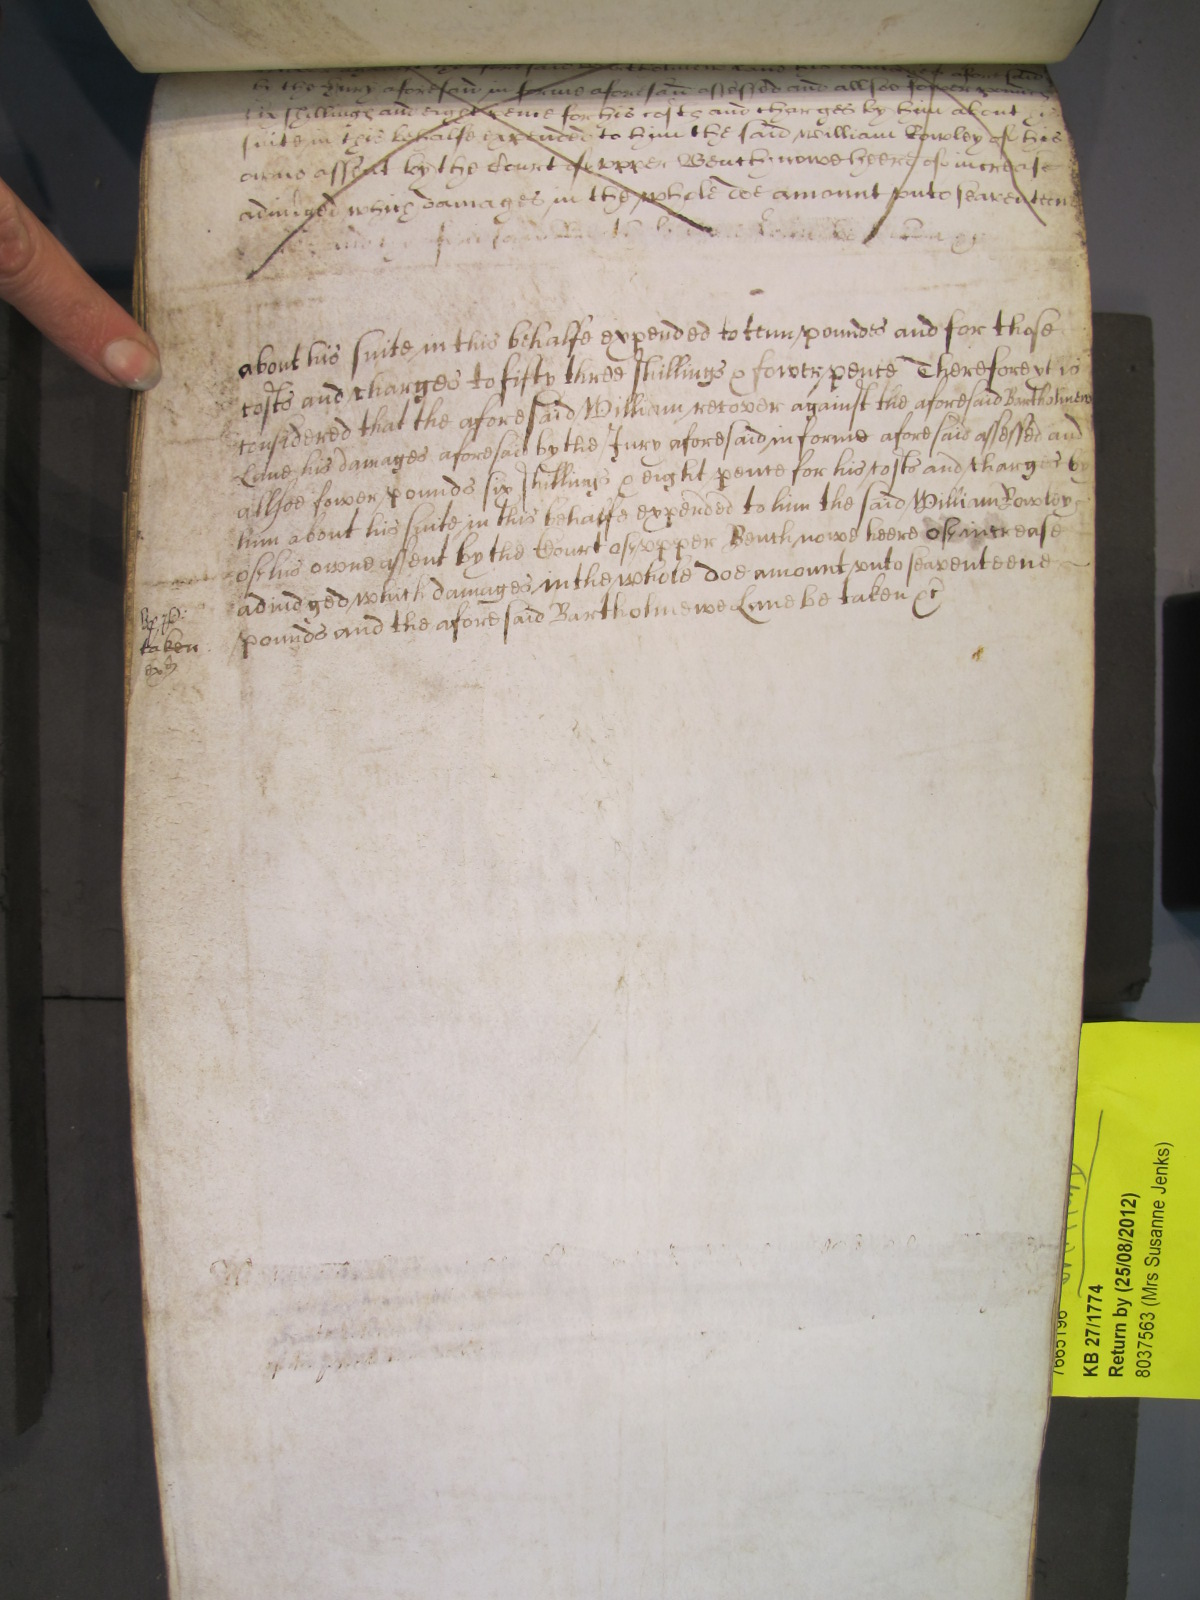 by the Jury aforesaid in forme aforesaid assessed and allsoe fower pounds
six shillings and eight pence for his costs and charges by him about his
suite in this behalfe expended to him the said William Rowley of his
owne assent by the Court of vpper Bench nowe heere of increase
adiudged which damages in the whole doe amount vnto seaventeene
about his suite in this behalfe expended to tenn pounds and for those
costs and charges to fifty three shillings & fower pence Therefore yt is
considered that the aforesaid William recover against the aforesaid Bartholmew
Lane his damages aforesaid by the Jury aforesaid in forme aforesaid assessed and
allsoe fower pounds six shillings & eight pence for his costs and charges by
him about his suite in this behalfe expended to him the said William Rowley
of his owne assent by the Court of vpper Bench nowe heere of increase
adiudged which damages in the whole doe amount vnto seaventeene
pounds and the aforesaid Bartholmewe Lane be taken &c
taken
7665196
KB 27/1774
Return by (25/08/2012)
8037563 (Mrs Susanne Jenks)